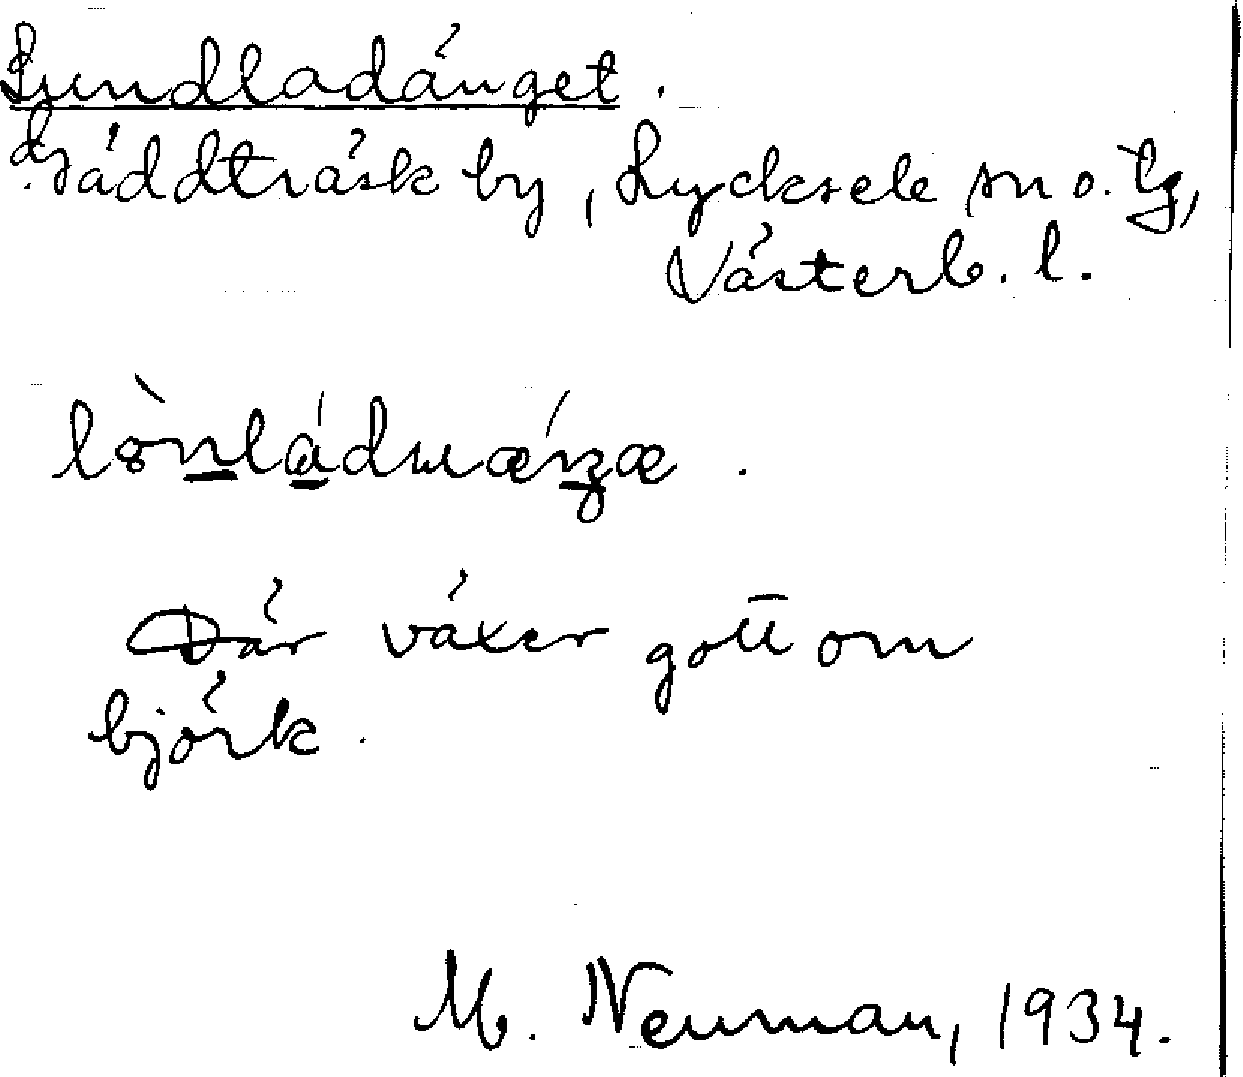 Lundladänget.
Gäddträsk by, Lycksele sn o. tg,
Västerb. l.
Där växer gott om
björk.
M. Neuman, 1934.